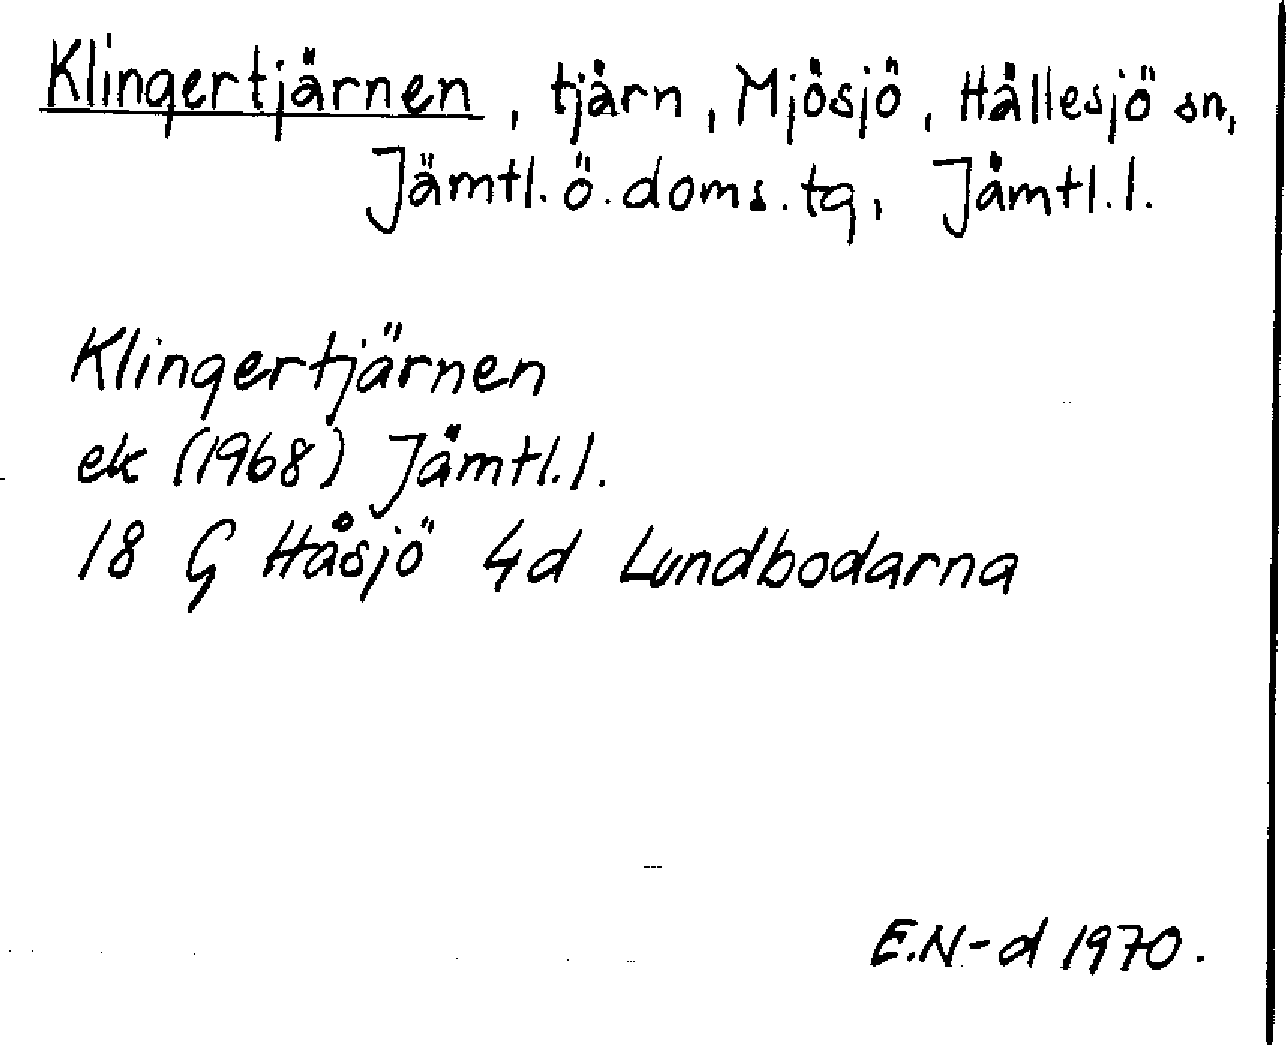 Klingertjärnen, tjärn, Mjösjö, Hällesjö sn,
Jämtl. ö. doms. tg, Jämtl. l.
Klingertjärnen
ek (1968) Jämtl. l.
18 G Håsjö 4d Lundbodarna
E.N-d 1970.